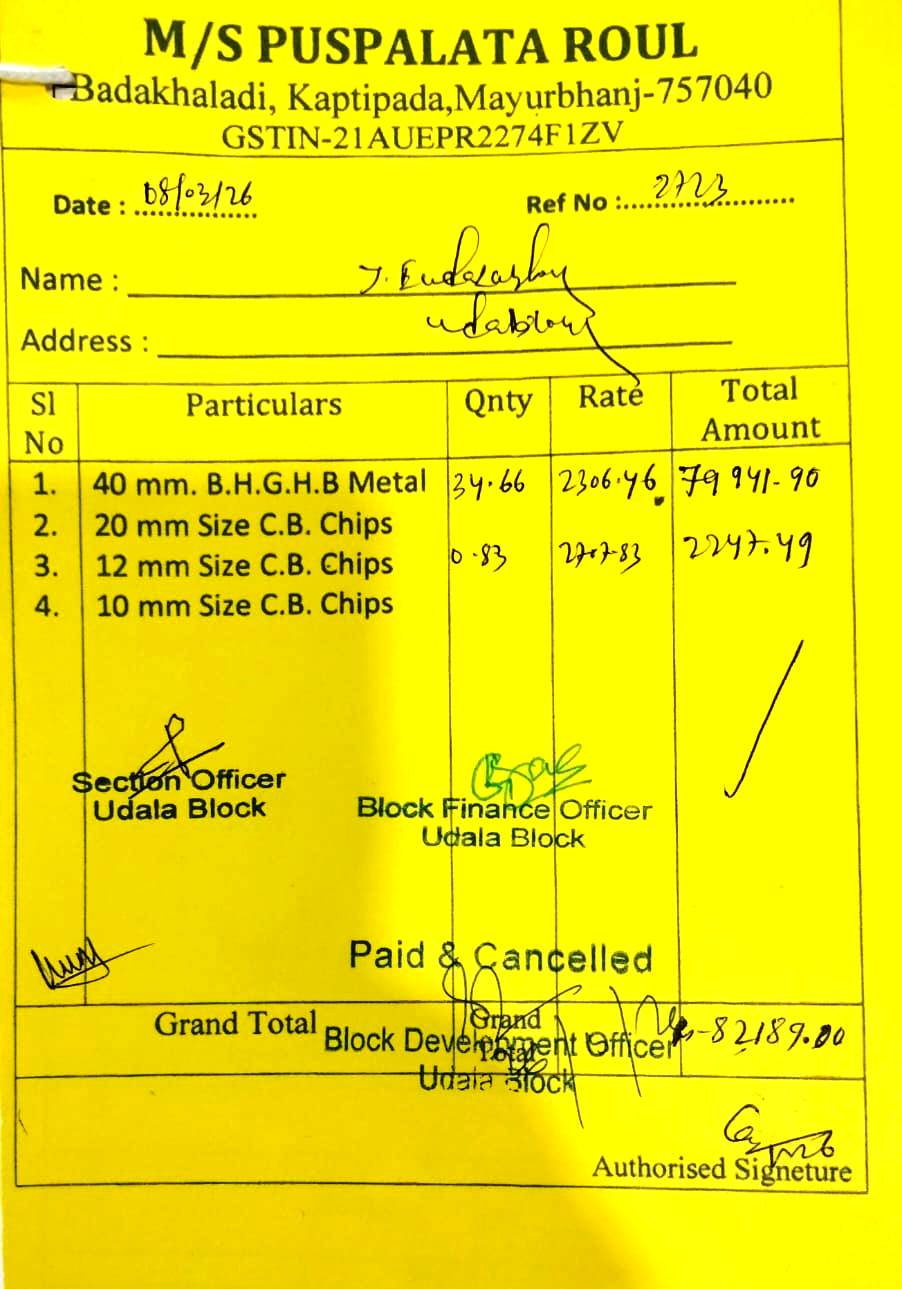 M/S PUSPALATA ROUL
Badakhaladi, Kaptipada,Mayurbhanj-757040
GSTIN-21AUEPR2274F1ZV
Date : 08/03/26 Ref No : 2723
Name :
Address :
Sl No Particulars Qnty Rate Total Amount
1. 40 mm. B.H.G.H.B Metal 34.66 2306.46 79941-90
2. 20 mm Size C.B. Chips
3. 12 mm Size C.B. Chips 0.83 2707-83 2247.49
4. 10 mm Size C.B. Chips
Section Officer
Udala Block
Block Finance Officer
Udala Block
Paid & Cancelled
Grand Total Grand Total 82189.00
Block Development Officer
Udala Block
Authorised Signeture